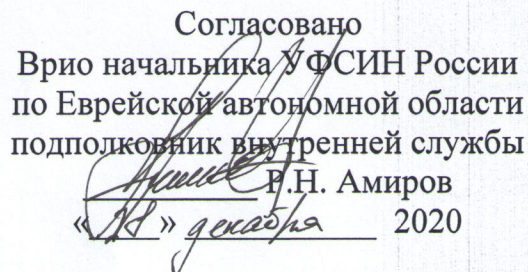 Согласовано
Врио начальника УФСИН России
по Еврейской автономной области
подполковник внутренней службы
Р.Н. Амиров
«28» декабря 2020